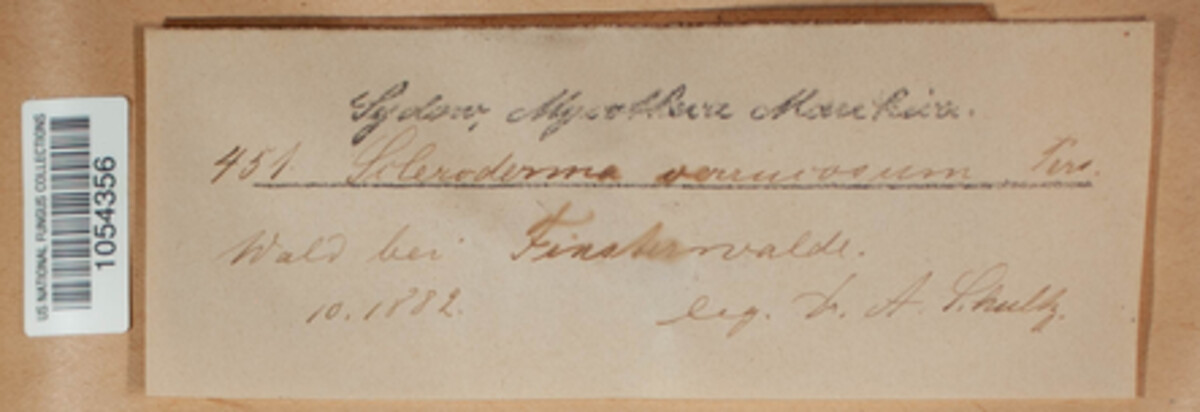 US NATIONAL FUNGUS COLLECTIONS
1054356
Sydow, Mycotheca Marchica.
451. Scleroderma verrucosum Pers.
Wald bei Finsterwalde.
10.1882.
leg. Dr. A. Schultz.